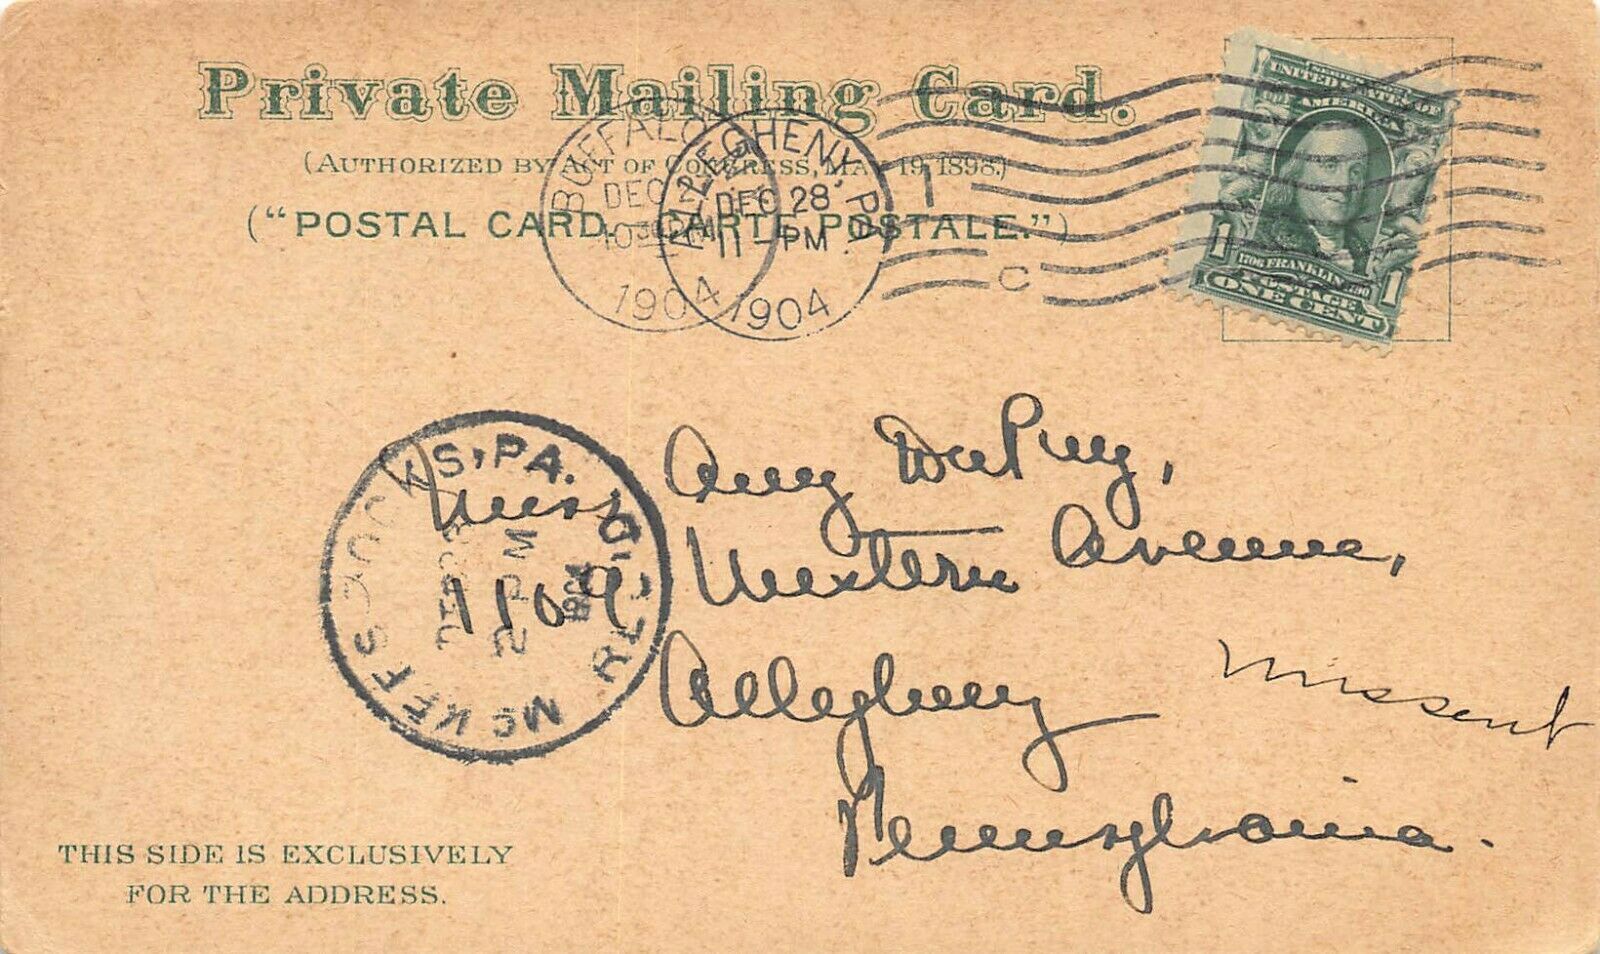 Private Mailing Card.
(AUTHORIZED BY ACT OF CONGRESS, MAY 19, 1898.)
("POSTAL CARD. CARTE POSTALE.")
BUFFALO
DEC
1904
ALLEGHENY, PA.
DEC 28
11-PM
1904
1
C
UNITED STATES OF
AMERICA
1706 FRANKLIN 1790
POSTAGE
1 ONE CENT 1
MCKEES ROCKS, PA. REC'D.
2 PM
1904
Miss Amy DuPuy,
1109 Western Avenue,
Allegheny
Missent
Pennsylvania.
THIS SIDE IS EXCLUSIVELY
FOR THE ADDRESS.